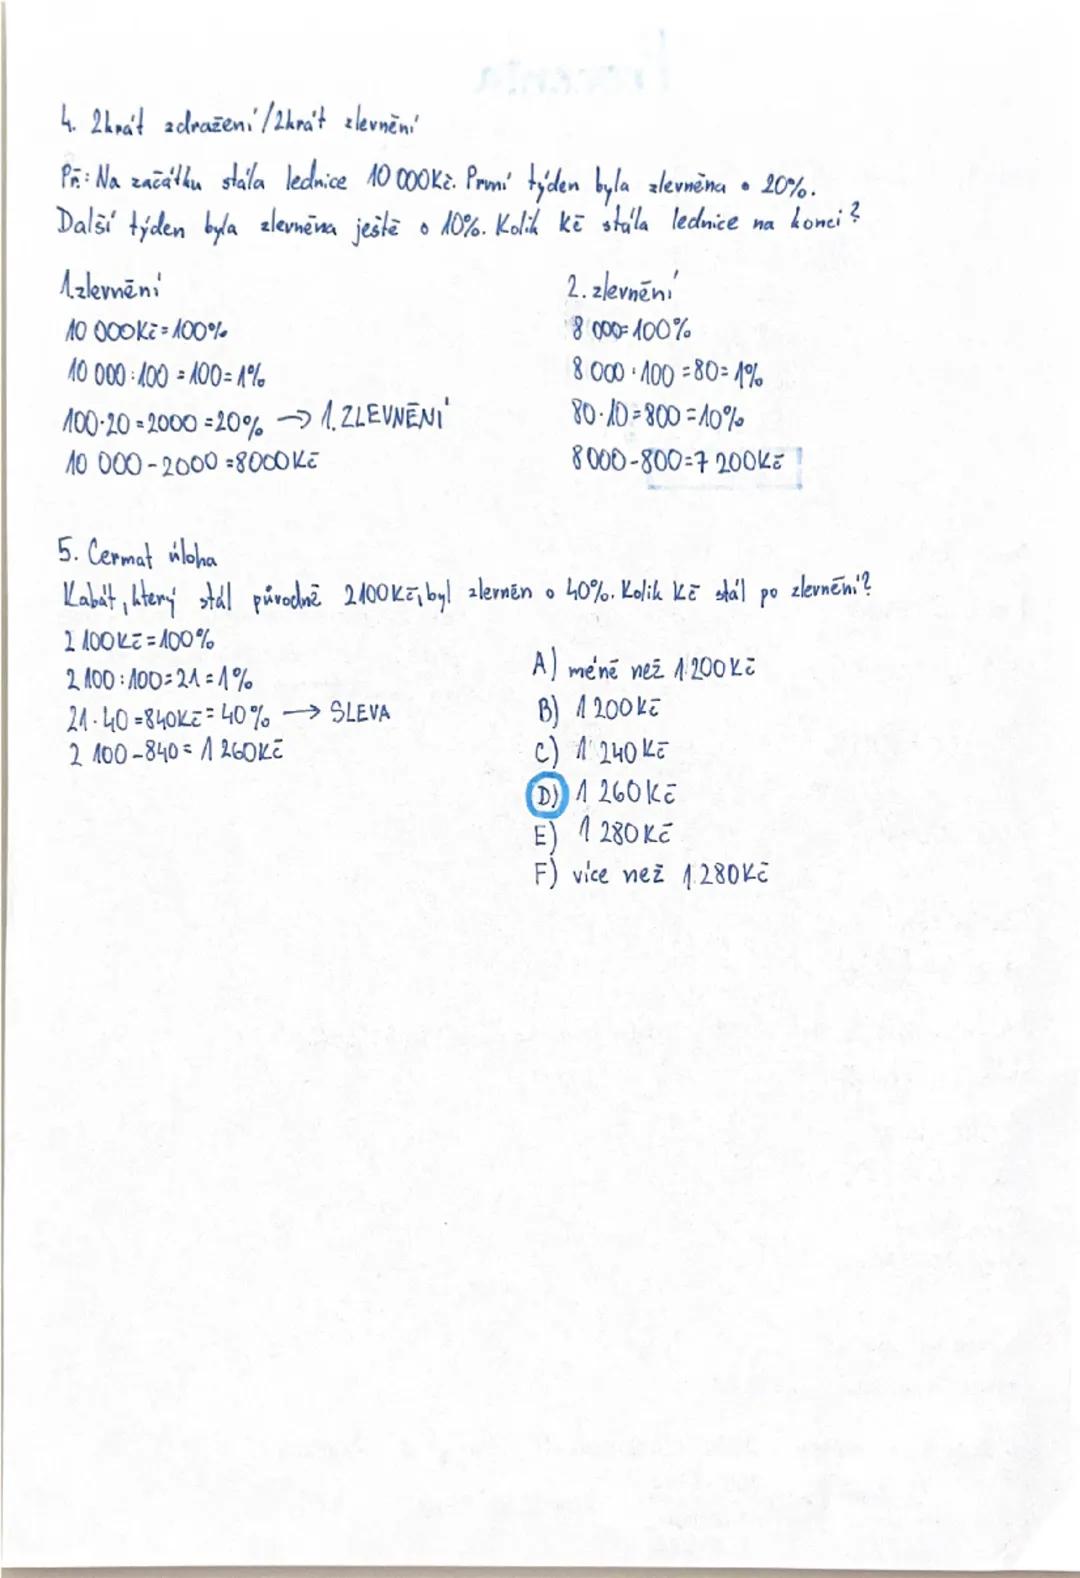 4. 2krát zdražení/2krát zlevnění
Př.: Na začátku stála lednice 10 000Kč. První týden byla zlevněna o 20%.
Další týden byla zlevněna ještě o 10%. Kolik Kč stála lednice na konci?
1. zlevnění
10 000Kč=100%
10 000:100=100=1%
100·20=2000=20% → 1. ZLEVNĚNÍ
10 000-2000=8000Kč
2. zlevnění
8 000=100%
8 000:100=80=1%
80·10=800=10%
8000-800=7 200Kč
5. Cermat úloha
Kabát, který stál původně 2100Kč, byl zlevněn o 40%. Kolik Kč stál po zlevnění?
2 100Kč=100%
2 100:100=21=1%
21·40=840Kč=40% → SLEVA
2 100-840=1 260Kč
A) méně než 1 200Kč
B) 1 200Kč
C) 1 240Kč
D) 1 260Kč
E) 1 280Kč
F) více než 1 280Kč